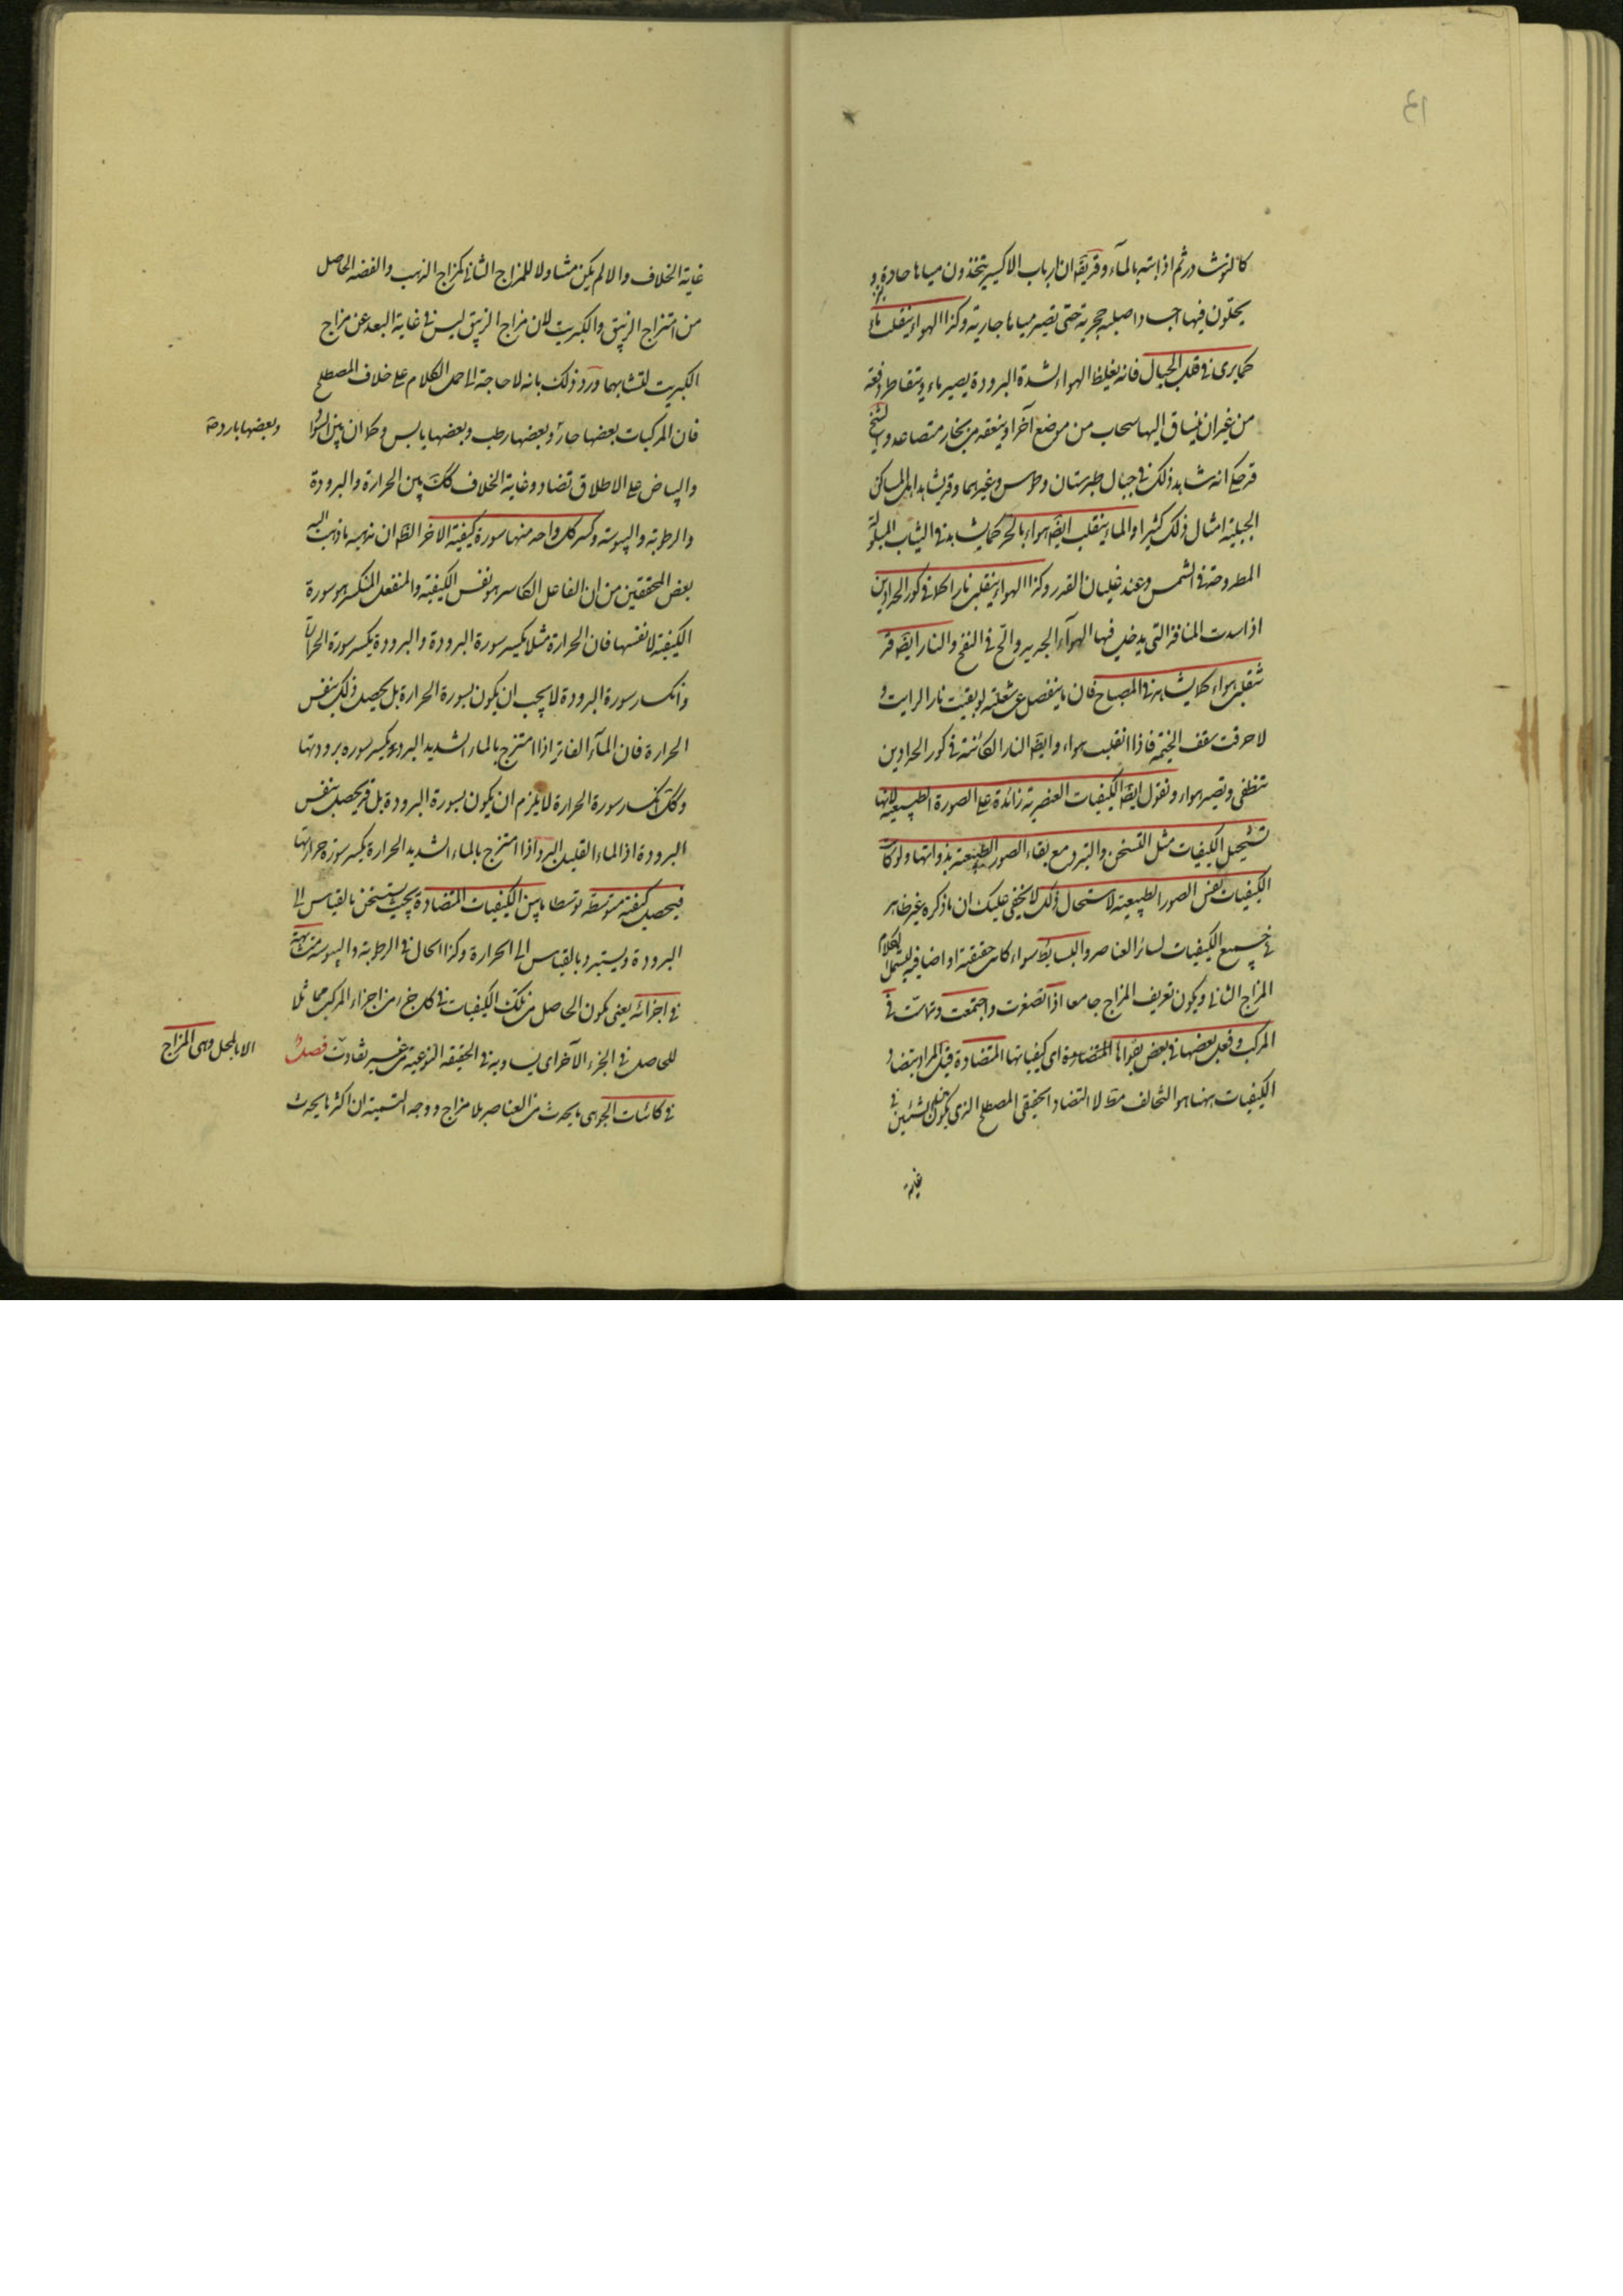 كالنوشادر ثم اذابته بالمآء وقد يقال ان ارباب الاكسير يتخذون مياها حادة و
يحلون فيها اجسادا صلبه حجرية حتى تصير مياها جارية وكذا الهواء ينقلب ماء
كما يرى فى قلل الجبال فانه يغلظ الهواء لشدة البرودة يصير ماء ويتقاطر دفعة
من غير ان ينساق اليها سحاب من موضع آخر او ينعقد من بخار متصاعد والشيخ
قد حكى انه شاهد ذلك فى جبال طبرستان وطوس وغيرهما وقد يشاهد اهل المساكن
الجبلية امثال ذلك كثيرا والماء ينقلب ايضا هواء بالحر كما يشاهد فى الثياب المبلولة
المطروحة فى الشمس وعند غليان القدر وكذا الهواء ينقلب نارا كما فى كور الحدادين
اذا سدت المنافذ التى يدخل فيها الهوآء الجديد والح فى النفخ والنار ايضا قد
تنقلب هواء كما يشاهد فى المصباح فان ما ينفصل عن شعلته لو بقيت نارا لرايت و
لاحرقت سقف الخيمة فاذا انقلبت هواء وايضا النار الكائنة فى كور الحدادين
تنطفى وتصير هواء ونقول ايضا الكيفيات العنصرية زائدة على الصورة الطبيعية لانها
تستحيل الكيفيات مثل التسخن والتبرد مع بقاء الصور الطبيعية بذواتها ولو كانت
الكيفيات نفس الصور الطبيعية لاستحال ذلك لا يخفى عليك ان ما ذكره غير ظاهر
فى جميع الكيفيات لسائر العناصر والبسايط سواء كانت حقيقية او اضافية ليشمل الكلام
المزاج الثانى ويكون تعريف المزاج جامعا اذا تصغرت واجتمعت وتماست فى
المركب وفعل بعضها فى بعض بقواها المتضادة اى كيفياتها المتضادة قيل المراد بتضاد
الكيفيات ههنا هو التخالف مط لا التضاد الحقيقى المصطلح الذى يكون بين الشيئين فى
غاية
غاية الخلاف والا لم يكن متناولا للمزاج الثانى كمزاج الذهب والفضه الحاصل
من امتزاج الزيبق والكبريت لان مزاج الزيبق ليس فى غاية البعد عن مزاج
الكبريت لتشابهما ورد ذلك بانه لا حاجة الى حمل الكلام على خلاف المصطلح
فان المركبات بعضها حار وبعضها رطب وبعضها يابس وكما ان بين السواد
وبعضها بارد
والبياض على الاطلاق تضاد وغاية الخلاف كك بين الحرارة والبرودة
والرطوبة واليبوسة وكسر كل واحد منها سورة كيفية الاخر الظ ان مذهبه ما ذهب اليه
بعض المحققين من ان الفاعل الكاسر هو نفس الكيفية والمنفعل المنكسر هو سورة
الكيفية لا نفسها فان الحرارة مثلا يكسر سورة البرودة والبرودة يكسر سورة الحرارة
وانكسار سورة البرودة لا يجب ان يكون بسورة الحرارة بل يحصل ذلك بنفس
الحرارة فان المآء الفاتر اذا امتزج بالماء الشديد البرد يكسر سورة برودتها
وكك انكسار سورة الحرارة لا يلزم ان يكون بسورة البرودة بل قد يحصل بنفس
البرودة اذ الماء القليل البرد اذا امتزج بالماء الشديد الحرارة يكسر سورة حرارتها
فيحصل كيفية متوسطة توسطا ما بين الكيفيات المتضادة بحيث يستسخن بالقياس الى
البرودة ويستبرد بالقياس الى الحرارة وكذا الحال فى الرطوبة واليبوسة متشابهة
فى اجزائه يعنى يكون الحاصل من تلك الكيفيات فى كل جزء من اجزاء المركب مماثلا
للحاصل فى الجزء الآخر اى يساويه فى الحقيقة النوعية من غير تفاوت فصل
الا بالمحل وهى المزاج
فى كائنات الجو هى ما يحدث من العناصر بلا مزاج ووجه التسمية ان اكثر ما يحدث